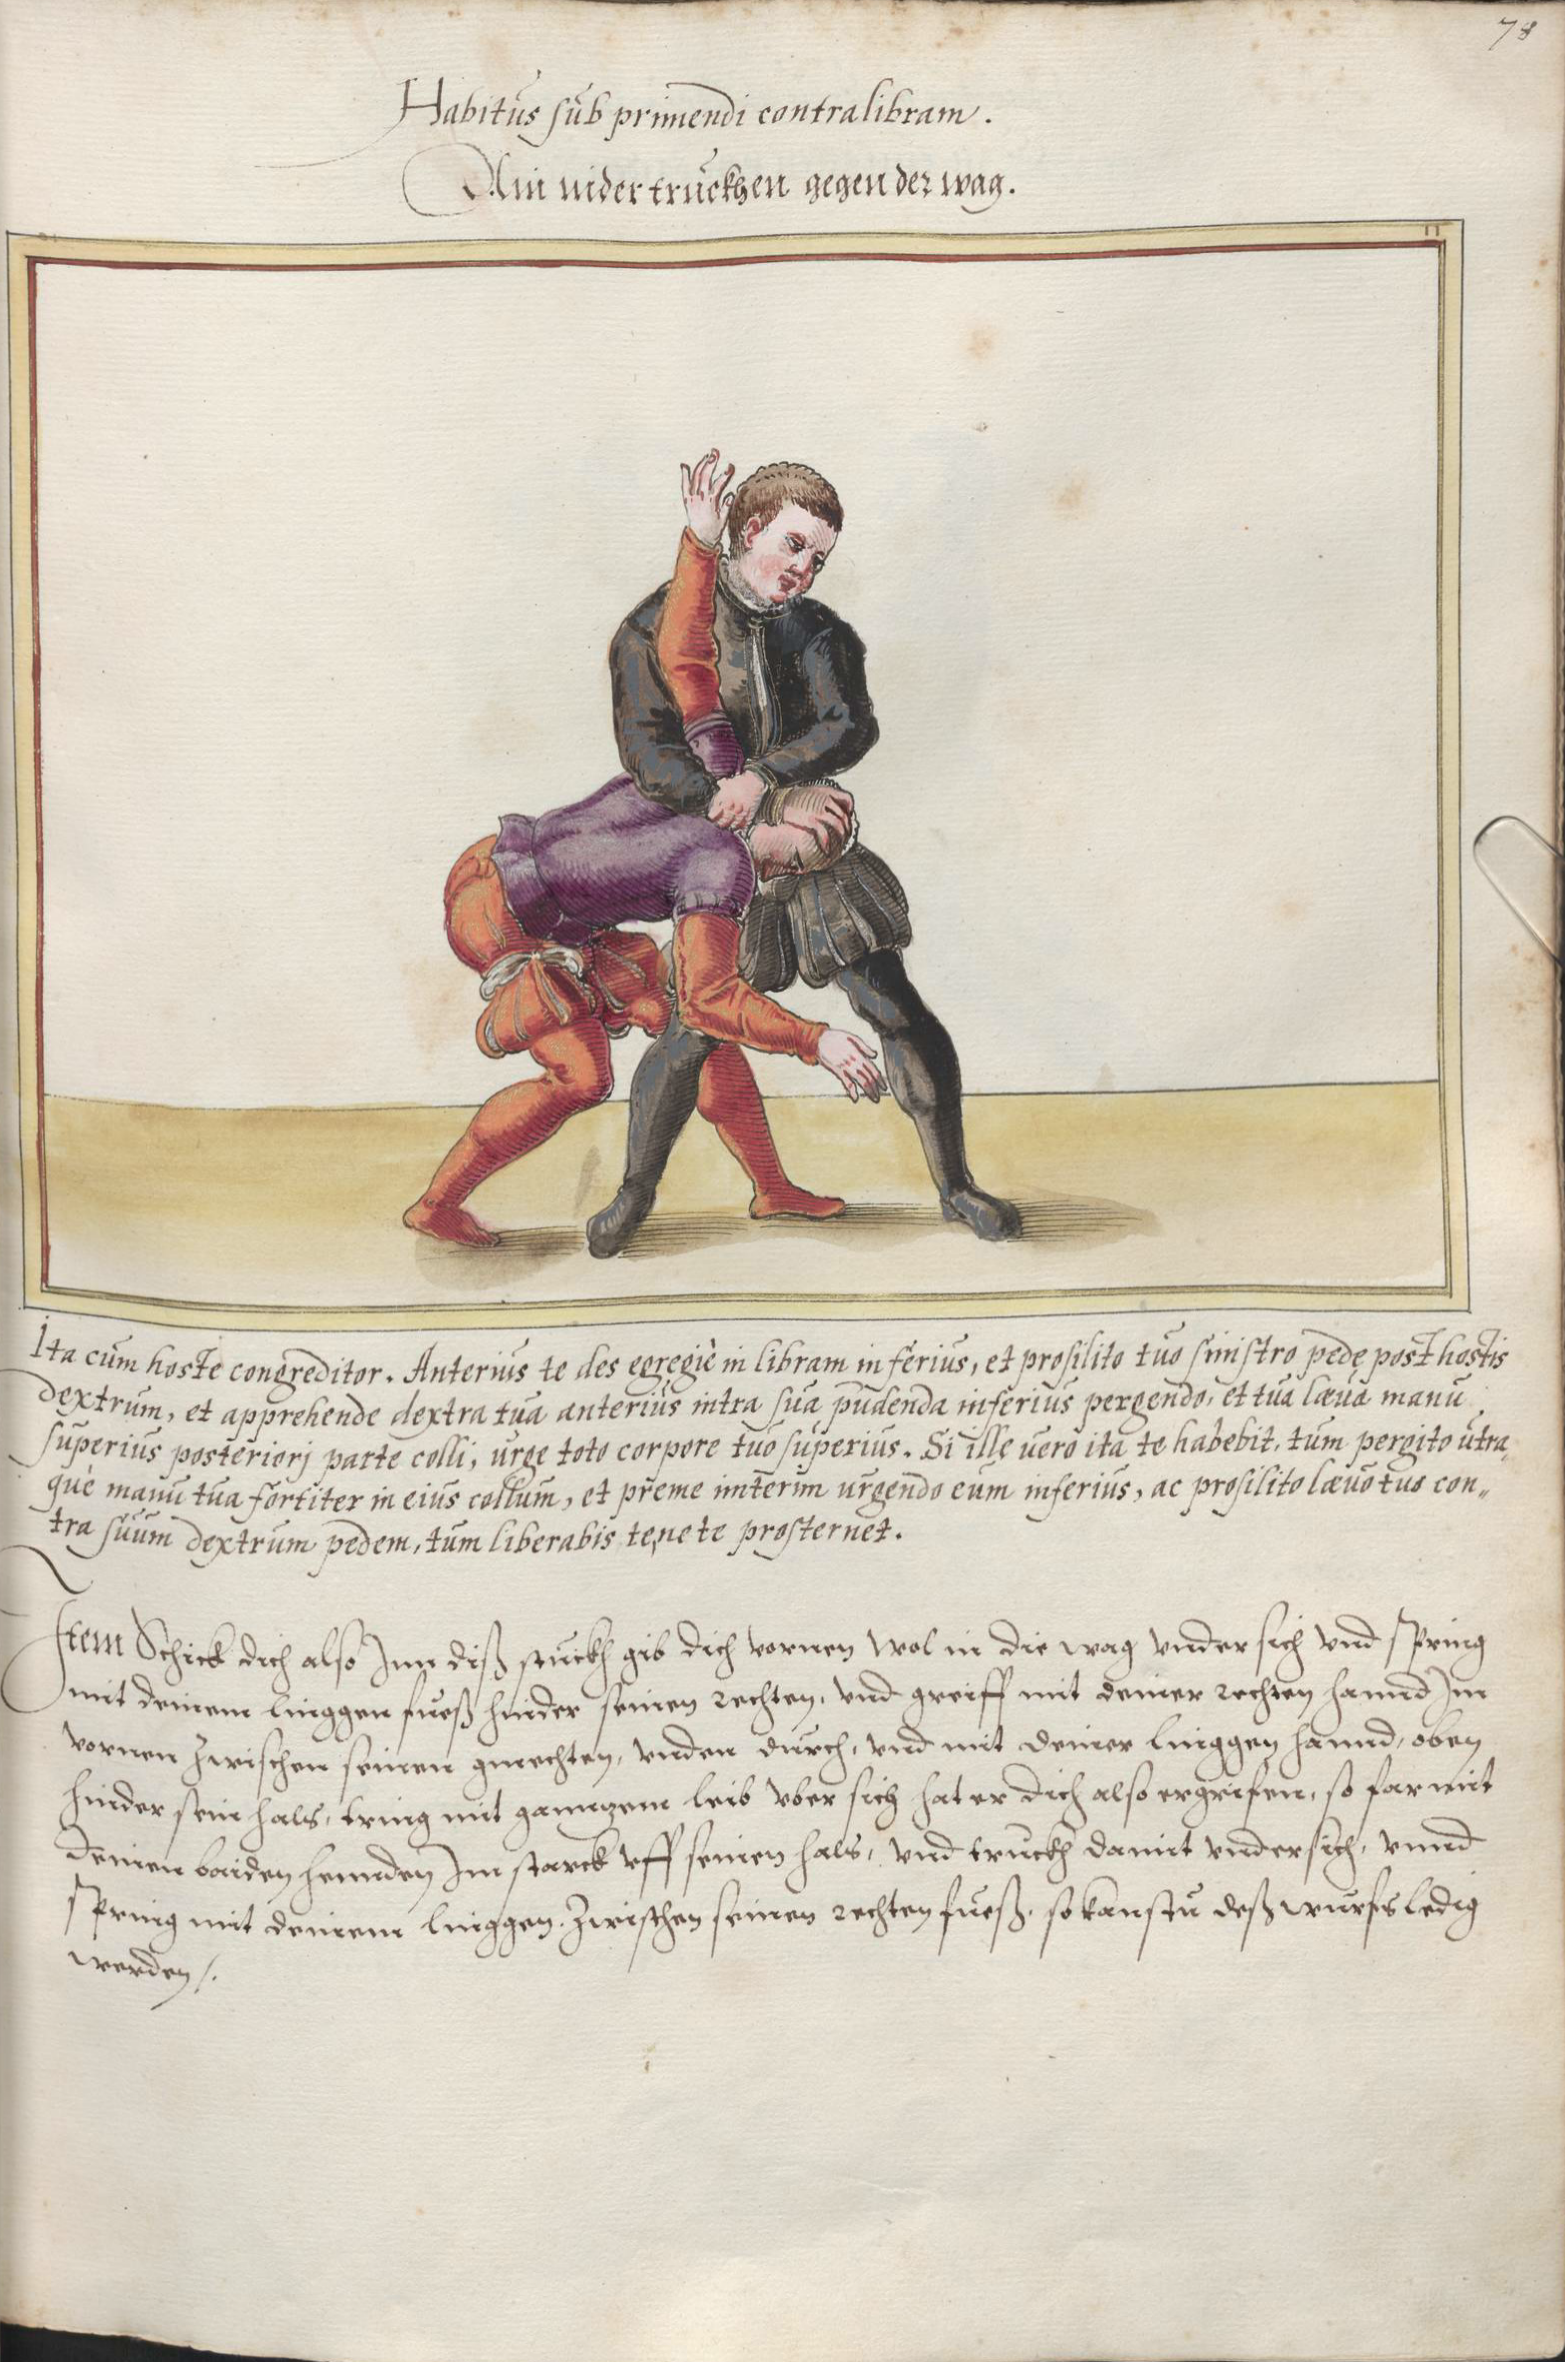 78
Habitus sub primendi contra libram.
Ain nider truckhen gegen der wag.
Ita cum hoste congreditor. Anterius te des egregiè in libram inferius, et prosilito tuo sinistro pede post hostis
dextrum, et apprehende dextra tua anterius intra sua pudenda inferius pergendo, et tua læva manu
superius posteriorj parte colli, urge toto corpore tuo superius. Si ille vero ita te habebit, tum pergito utra,
què manu tua fortiter in eius collum, et preme interim urgendo eum inferius, ac prosilito lævo tuo con„
tra suum dextrum pedem, tum liberabis te, ne te prosternet.
Item Schick dich also Inn diß stuckh gib dich vornen wol in die wag vndersich vnd spring
mit deinem linggen fueß hinder seinen rechten, vnd greiff mit deiner rechten hannd Im
vornen zwischen seinen gmechten, vnden durch, vnd mit deiner linggen hannd, oben
hinder sein hals, tring mit ganntzem leib vber sich hat er dich also ergrifen, so far mit
deinen baiden hennden Im starck vff seinen hals, vnd truckh damit vndersich, vnnd
spring mit deinem linggen. zwischen seinen rechten fueß. so kanstu deß wurfs ledig
werden /.